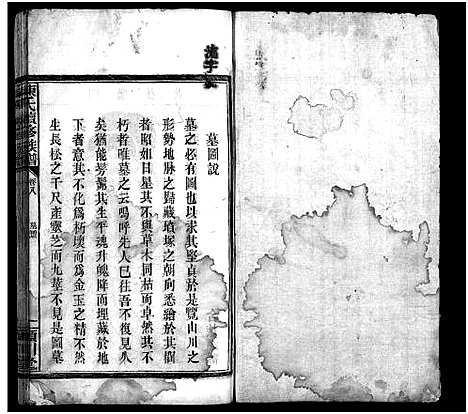 墓圖說
墓之必有圖也以求其鑿眞於是覽山川之
形勢地脉之歸藏墳塚之朝向悉繪於其間
者昭如日星其不與草木同枯而卓然其不
朽者唯墓之云嗚呼先人已往吾不復見久
矣猶能髣髴其生平魂升魄降而埋藏於地
下者意其不化爲朽壤而爲金玉之精不然
生長松之千尺產靈芝而九莖不見是圖墓
氏續修族譜
卷八
墓圖